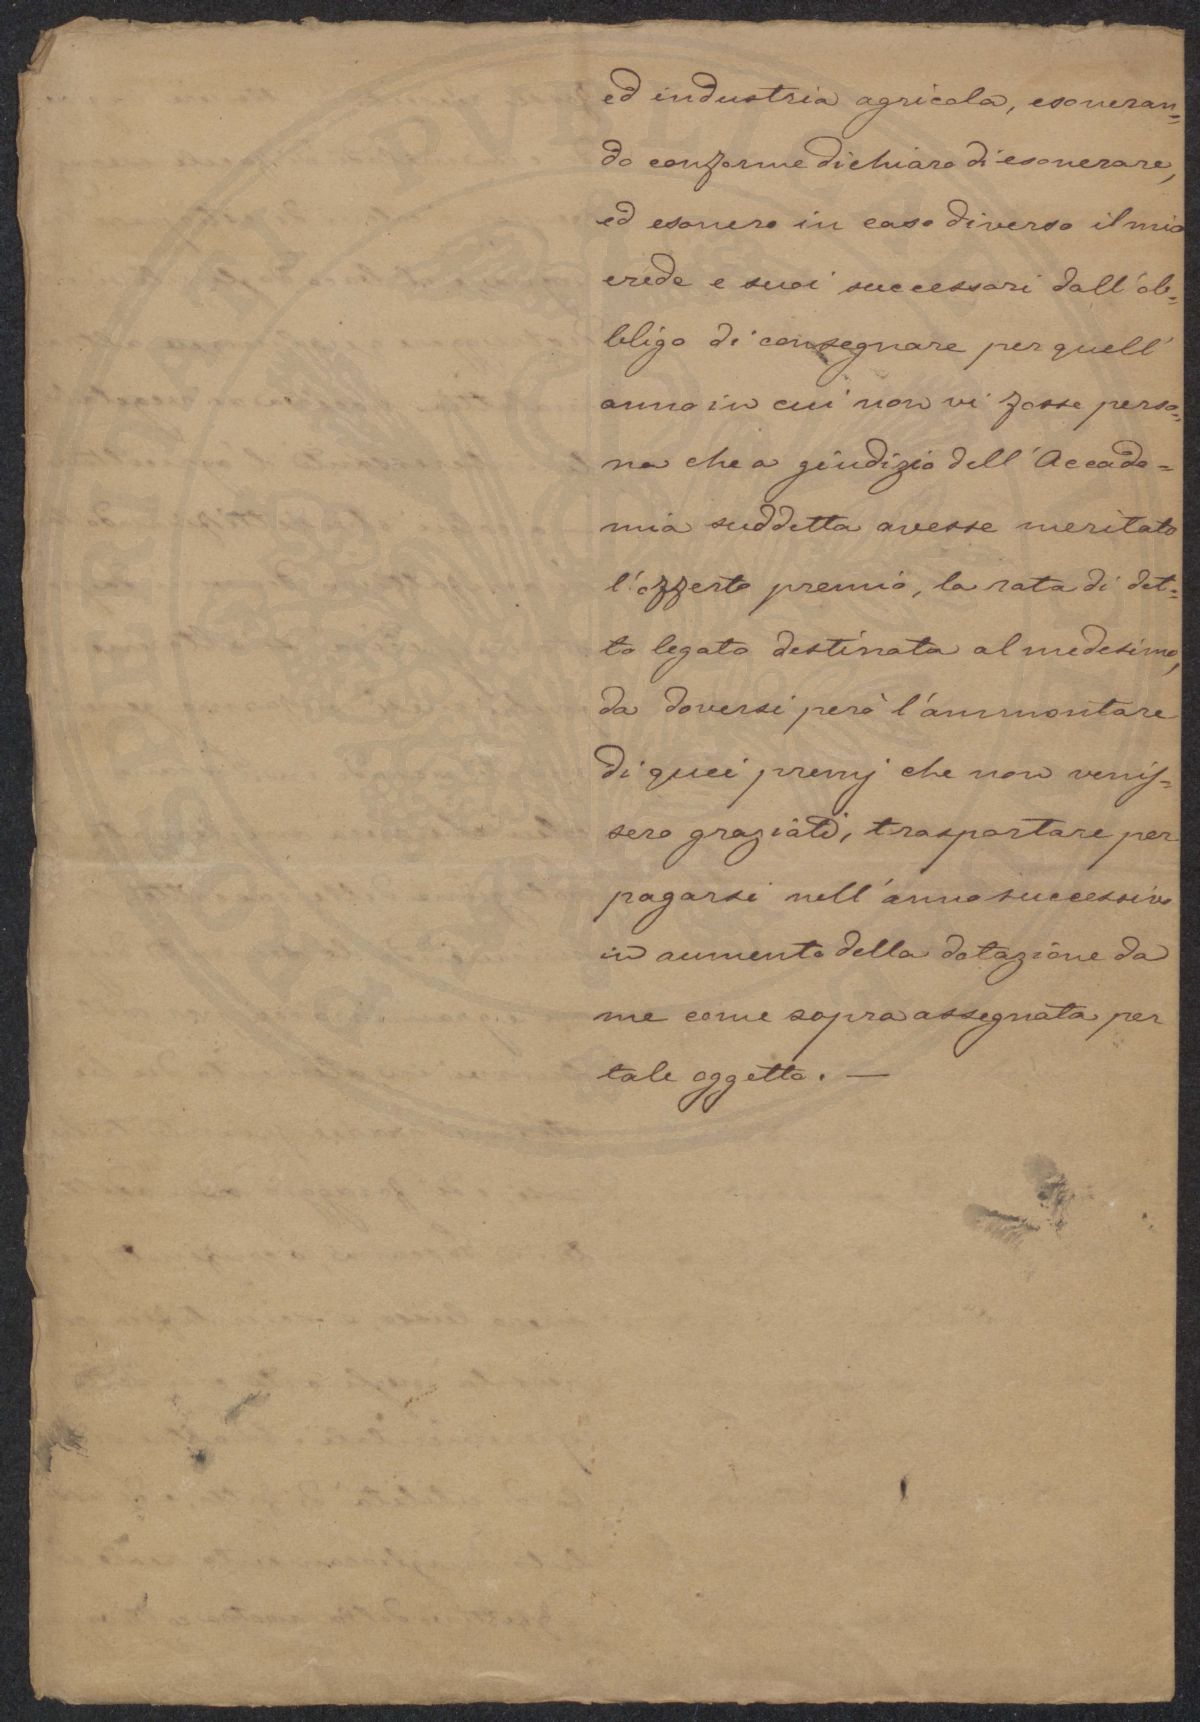 ed industria agricola, esoneran=
do conforme dichiaro di esonerare,
ed esonero in caso diverso il mio
erede e suoi successori dall'ob=
bligo di consegnare per quell'
anno in cui non vi fosse perso=
na che a giudizio dell'Accade=
mia suddetta avesse meritato
l'offerto premio, la rata di det=
to legato destinata al medesimo,
da doversi però l'ammontare
di quei premj che non venis=
sero graziati, trasportare per
pagarsi nell'anno successivo
in aumento della dotazione da
me come sopra assegnata per
tale oggetto. —